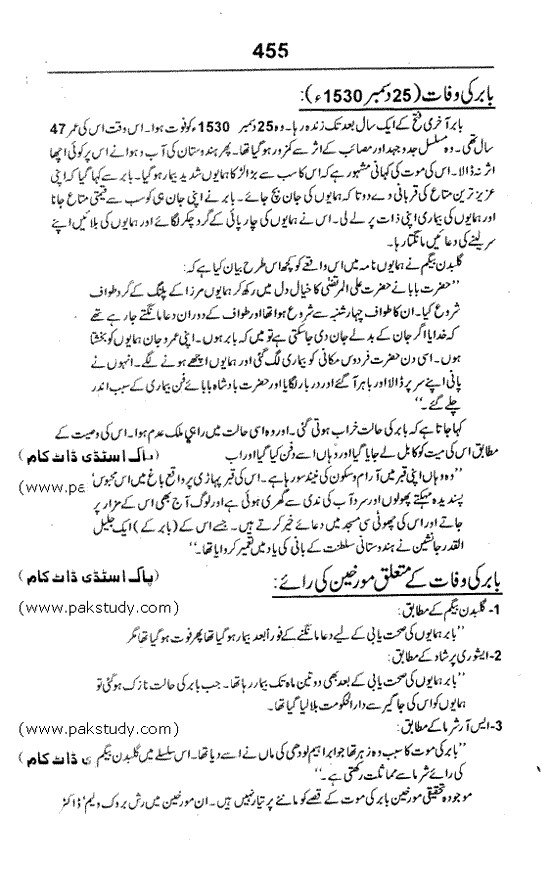 455
بابر کی وفات (25 دسمبر 1530ء):
بابر آخری فتح کے ایک سال بعد تک زندہ رہا۔ وہ 25 دسمبر 1530ء کو فوت ہوا۔ اس وقت اس کی عمر 47
سال تھی۔ وہ مسلسل جدوجہد اور مصائب کے اثر سے کمزور ہو گیا تھا۔ پھر ہندوستان کی آب و ہوا نے اس پر کوئی اچھا
اثر نہ ڈالا۔ اس کی موت کی کہانی مشہور ہے کہ اس کا سب سے بڑا لڑکا ہمایوں شدید بیمار ہو گیا۔ بابر سے کہا گیا کہ اپنی
عزیز ترین متاع کی قربانی دے دو تا کہ ہمایوں کی جان بچ جائے۔ بابر نے اپنی جان ہی کو سب سے قیمتی متاع جانا
اور ہمایوں کی بیماری اپنی ذات پر لے لی۔ اس نے ہمایوں کی چارپائی کے گرد چکر لگائے اور ہمایوں کی بلائیں اپنے
سر لینے کی دعائیں مانگتا رہا۔
گلبدن بیگم نے ہمایوں نامہ میں اس واقعے کو کچھ اس طرح بیان کیا ہے کہ:
”حضرت بابا نے حضرت علی المرتضیٰ کا خیال دل میں رکھ کر ہمایوں مرزا کے پلنگ کے گرد طواف
شروع کیا۔ ان کا طواف چہار شنبہ سے شروع ہوا تھا اور طواف کے دوران دعا مانگتے جا رہے تھے
کہ خدایا اگر جان کے بدلے جان دی جا سکتی ہے تو میں کہ بابر ہوں۔ اپنی عمر و جان ہمایوں کو بخشتا
ہوں۔ اسی دن حضرت فردوس مکانی کو بیماری لگ گئی اور ہمایوں اچھے ہونے لگے۔ انہوں نے
پانی اپنے سر پر ڈالا اور باہر آ گئے اور دربار لگایا اور حضرت بادشاہ بابائے من بیماری کے سبب اندر
چلے گئے۔“
کہا جاتا ہے کہ بابر کی حالت خراب ہوتی گئی۔ اور وہ اسی حالت میں راہی ملک عدم ہوا۔ اس کی وصیت کے
مطابق اس کی میت کو کابل لے جایا گیا اور وہاں اسے دفن کیا گیا اور اب (پاک اسٹڈی ڈاٹ کام
”وہ وہاں اپنی قبر میں آرام و سکون کی نیند سو رہا ہے۔ اس کی قبر پہاڑی پر واقع باغ میں اس (www.pa
پسندیدہ مہکتے پھولوں اور سرد آب کی ندی سے گھری ہوئی ہے اور لوگ آج بھی اس کے مزار پر
جاتے اور اس کی چھوٹی سی مسجد میں دعائے خیر کرتے ہیں۔ جسے اس کے (بابر کے) ایک جلیل
القدر جانشین نے ہندوستانی سلطنت کے بانی کی یاد میں تعمیر کروایا تھا۔“
بابر کی وفات کے متعلق مورخین کی رائے: (پاک اسٹڈی ڈاٹ کام)
1- گلبدن بیگم کے مطابق: (www.pakstudy.com)
”بابر ہمایوں کی صحت یابی کے لیے دعا مانگنے کے فوراً بعد بیمار ہو گیا تھا پھر فوت ہو گیا تھا مگر
2- ایشوری پرشاد کے مطابق:
”بابر ہمایوں کی صحت یابی کے بعد بھی دو تین ماہ تک بیمار رہا تھا۔ جب بابر کی حالت نازک ہو گئی تو
ہمایوں کو اس کی جاگیر سے دارالحکومت بلا لیا گیا تھا۔
3- ایس آر شرما کے مطابق: (www.pakstudy.com)
”بابر کی موت کا سبب وہ زہر تھا جو ابراہیم لودھی کی ماں نے اسے دیا تھا۔ اس سلسلے میں گلبدن بیگم ی ڈاٹ کام)
کی رائے شرما سے مماثلت رکھتی ہے۔“
موجودہ تحقیقی مورخین بابر کی موت کے قصے کو ماننے پر تیار نہیں ہیں۔ ان مورخین میں رش بروک ولیم‘ ڈاکٹر